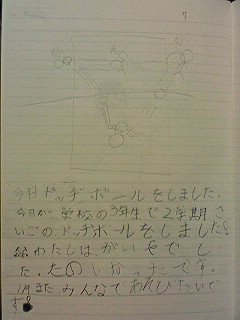 7
今日ドッヂボールをしました。
今日が、学校の3年生で2学期さ
いごの、ドッヂボールをしました!
わたしは、がいやでし
た。たのしかったです。
また、みんなであそびたいで
す!